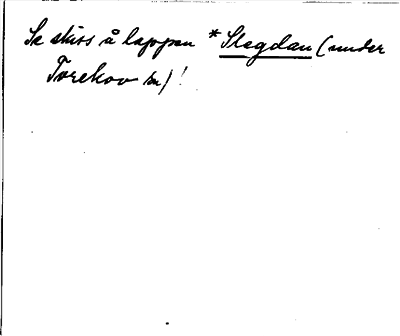 Se skiss å lappen *Slegdan (under
Torekov sn)!